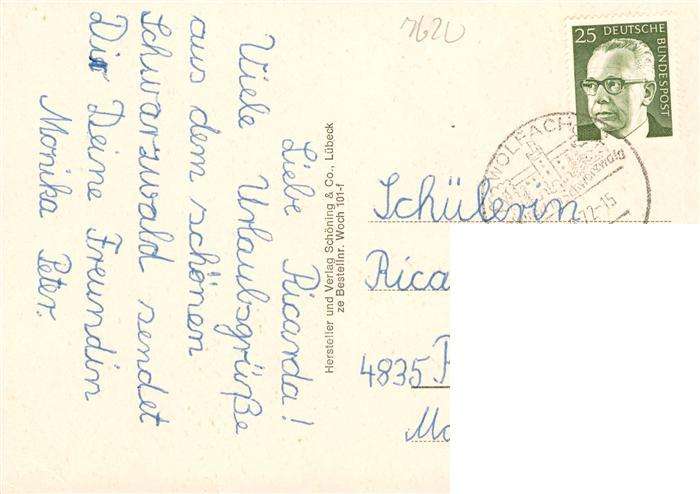 Liebe Ricarda!
Viele Urlaubsgrüße
aus dem schönen
Schwarzwald sendet
Dir Deine Freundin
Monika Peter.
Hersteller und Verlag Schöning & Co., Lübeck
ze Bestellnr. Woch 101-f
7620
25 DEUTSCHE
BUNDESPOST
WOLFACH
72-15
Schülerin
Rica
4835